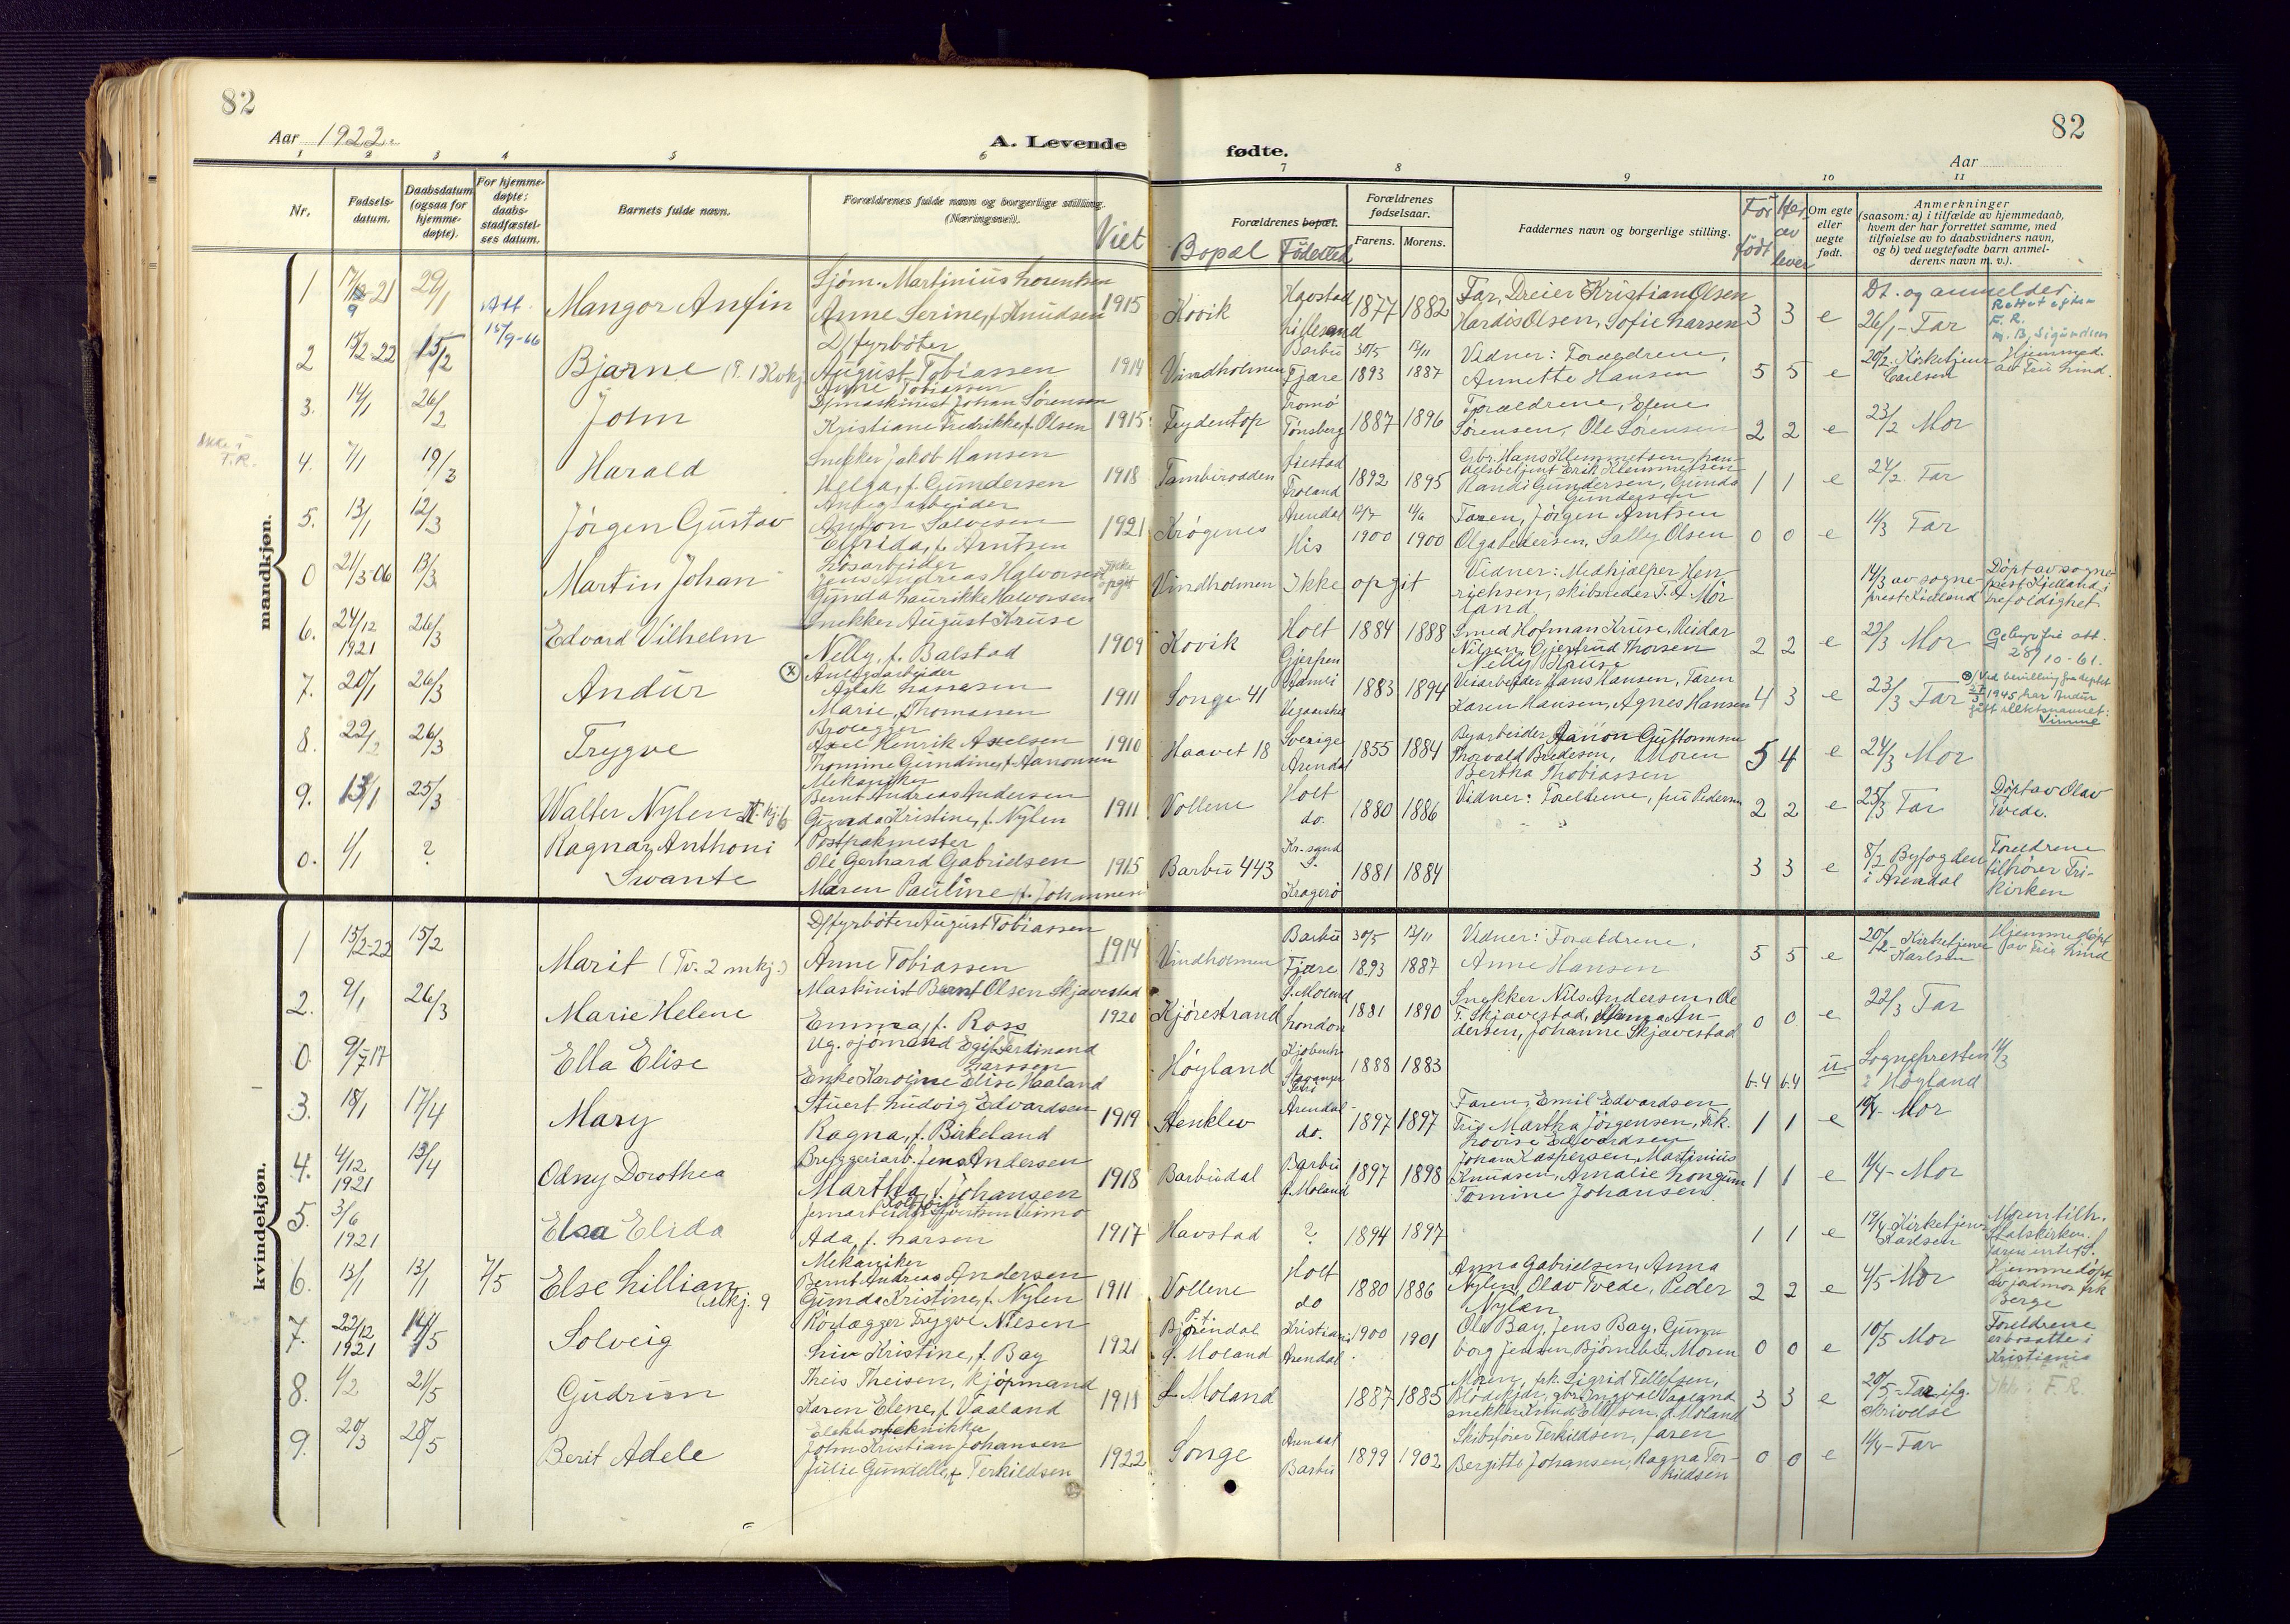 82
82
Aar 1922.
A. Levende
fødte.
Aar
1 2 3 4 5 6 7 8 9 10 11
Nr.
Fødsels-
datum.
Daabsdatum
(ogsaa for
hjemme-
døpte).
For hjemme-
døpte:
daabs-
stadfæstel-
ses datum.
Barnets fulde navn.
Forældrenes fulde navn og borgerlige stilling.
(Næringsvei).
Viet
Forældrenes bopæl.
Bopæl Fødested
Forældrenes
fødselsaar.
Farens. Morens.
Faddernes navn og borgerlige stilling.
Før
født
Har
av
lever
Om egte
eller
uegte
født.
Anmerkninger
(saasom: a) i tilfælde av hjemmedaab,
hvem der har forrettet samme, med
tilføielse av to daabsvidners navn,
og b) ved uegtefødte barn anmel-
derens navn m. v.).
mandkjøn.
1 29/1 Att. 15/9-66 Mangor Anfin
Sjøm. Martinius Lorentsen
Anne Serine, f. Knudsen 1915 Kovik
Lillesand 1877 1882
Far, Dreier Kristian Olsen
Hardis Olsen, Sofie Larsen 3 3 e
Dt. og anmeldt.
26/1 - Far
2 15/2-22 15/2 Bjarne
D/fyrbøter
August Tobiassen
Anne Tobiassen 1914 Vindholmen
Barbu
Fjære
30/5 1893 13/11 1887
Vidner: Forældrene,
Annette Hansen 5 5 e
20/2. Kirketjener
Carlsen
Hjemmed.
av Fru Lind.
3. 14/1 26/2 John
D/maskinist Johan Sørensen
Kristiane Fredrikke f. Olsen 1915 Frydentop
Tromø
Tønsberg 1887 1896
Forældrene, Elene
Sørensen, Ole Sørensen 2 2 e 23/2 Mor
Ikke i
F.R.
4. 7/1 19/3 Harald
Snekker Jakob Hansen
Helga, f. Gundersen 1918
Froland 1892 1895
Gbr. Hans Klemmetsen, han-
delsbetjent Erik Klemmetsen
Randi Gundersen, Gunda
Gundersen 1 1 e 24/2. Far
5. 13/1 12/3 Jörgen Gustav
Anton Salvesen
Elfrida, f. Arntsen 1921 Krøgenes
Arendal
His
1900 1900
Faren, Jørgen Arntsen
Olga Pedersen, Sally Olsen 0 0 e 14/3 Far
0 21/3-06 13/3 Martin Johan
Løsarbeider
Jens Andreas Halvorsen
Gunda Laurikke Halvorsen
Ikke
opgit
Vindholmen Ikke opgit
Vidner: Medhjælper Hen-
richsen, skibsreder T. A. Mør
land
14/3 av sogne-
prest Kielland
Döpt av sogne-
prest Kielland,
Trefoldighet.
6. 24/12 1921 26/3 Edvard Vilhelm
Snekker August Kruse
Nelly, f. Balstad 1909 Kovik
Holt
Gjerpen 1884 1888
Smed Hofman Kruse, Reidar
Nilsen, Gjertrud Thorsen
Nelly Kruse 2 2 e 22/3 Mor
28/10-61.
7. 20/1 26/3 Andur
Anlegsarbeider
Aslak Lassesen
Marie, f. Thomassen 1911 Songe 41
Gjamli
Vegaarshei 1883 1894
Veiarbeider Hans Hansen, Faren
Karen Hansen, Agnes Hansen 4 3 e 23/3 Far
1945, har Andur
fått slektsnavnet:
Simme
8. 22/2 26/3 Trygve
Brolegger
Axel Henrik Axelsen
Thomine Gundine, f. Aanonsen 1910 Haavet 18
Sverige
Arendal 1855 1884
Byarbeider Aanon Guttormsen
Thorvald Bredesen, Moren
Bertha Thobiassen 5 4 e 24/3 Mor
9. 13/1 25/3 Walter Nylen
Mekaniker
Bernt Andreas Andersen
Gunda Kristine, f. Nylen 1911 Vollene
Holt
do. 1880 1886
Vidner: Foreldrene, fru Pedersen 2 2 e 25/3 Far
Døpt av Olav
Tvede.
0. 1/1 ? Ragnar Anthoni
Swante
Postpakmester
Ole Gerhard Gabrielsen
Maren Pauline f. Johannesen 1915 Barbu 443
Kr. sand
S.
Kragerø 1881 1884 3 3 e
8/2 Byfogden
i Arendal
Foreldrene
tilhører Fri-
kirken
kvindekjøn.
1 15/2-22 15/2 Marit (Tv. 2 mkj.)
D/fyrbøter August Tobiassen
Anne Tobiassen 1914 Vindholmen
Barbu
Fjære
30/5 1893 13/11 1887
Vidner: Forældrene,
Anne Hansen 5 5 e
20/2 - Kirketjener
Karlsen
Hjemmedöpt
av Fru Lind
2. 9/1 26/3 Marie Helene
Maskinist Bernt Olsen Skjævestad
Emma, f. Ross 1920 Kjørestrand
Ø. Moland
London 1881 1890
Snekker Nils Andersen, Ole
T. Skjævestad, An-
dersen, Johanne Skjævestad 0 0 e 22/3 Far
0. 9/7 17 Ella Elise
Ug. sjømand Egil Ferdinand
Larssen
Enke Karoline Elise Haaland
Høyland
Stavanger 1888 1883 6.4 6.4 u
Sognepresten
i Høyland
3. 18/1 17/4 Mary
Stuert Ludvig Edvardsen
Ragna, f. Birkeland 1919 Stenklev
Arendal
do. 1897 1897
Faren, Emil Edvardsen
Fru Martha Jörgensen, Frk.
Lovise Edvardsen 1 1 e Mor
4. 4/12 1921 13/4 Odny Dorothea
Bryggeriarb. Jens Andersen
Martha, f. Johansen 1918 Barbudal
Barbu
Ø. Moland 1897 1898
Johan Kaspersen, Martinius
Knudsen, Amalie Longum
Tomine Johansen 1 1 e 11/4 - Mor
5. 3/6 1921 Elsa Elida
Ada, f. Larsen 1917 Havstad ? 1894 1897 1 1 e
19/4 Kirketjener
Karlsen
Moren tilh.
Statskirken.
6. 13/1 13/1 7/5 Else Lillian
(Mkj. 9
Mekaniker
Bernt Andreas Andersen
Gunda Kristine, f. Nylen 1911 Vollene
Holt
do 1880 1886
Anna Gabrielsen, Anna
Nylen, Olav Tvede, Peder
Nylen 2 2 e 4/5 Mor
Hjemmedøpt
av jordmor frk
Berge
7. 22/12 1921 14/5 Solveig
Rørlægger Trygve Nilsen
Liv Kristine, f. Bay 1921
Ø. Moland
Kristiania
Arendal 1900 1901
Ole Bay, Jens Bay, Gunn
borg Jensen, Moren 0 0 e 10/5 Mor
Foreldrene
er bosatte i
Kristiania
8. 1/2 21/5 Gudrun
Theis Theisen, kjøpmand
Karen Elene, f. Vaaland 1918 Ø. Moland 1887 1885
Moren, frk. Sigrid Tellefsen,
gbr. Ingvall Vaaland
snekker Knud Ellefsen, Ø. Moland 3 3 e
20/5 - Far ifg.
skrivelse
Ikke i F.R.
9. 20/3 28/5 Berit Adele
Elektrotekniker
John Kristian Johansen
Julie Gundelle, f. Terkildsen 1922 Songe
Arendal
Barbu 1899 1902
Skibsfører Terkildsen, faren
Bergitte Johansen, Ragna Ter-
kildsen 0 0 e 11/4 - Far